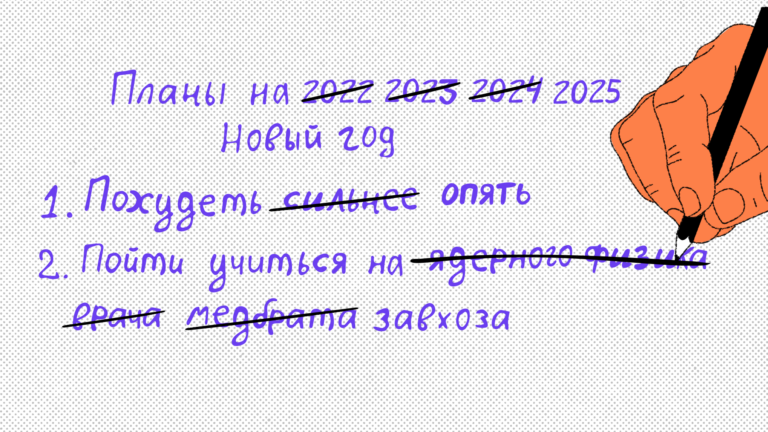 Планы на 2022 2023 2024 2025
Новый год
1. Похудеть сильнее опять
2. Пойти учиться на ядерного физика
врача медбрата завхоза